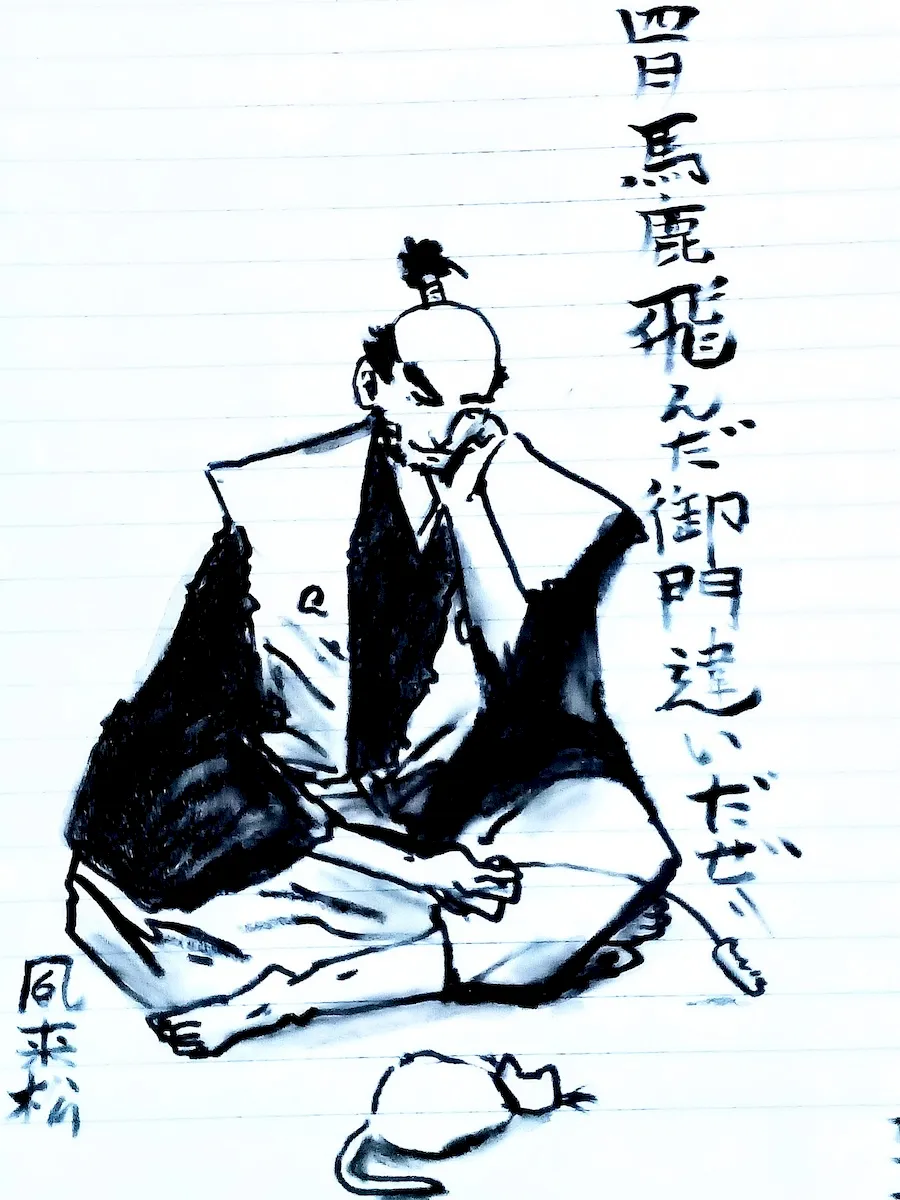 四日馬鹿飛んだ御門違いだぜ〃
風来松